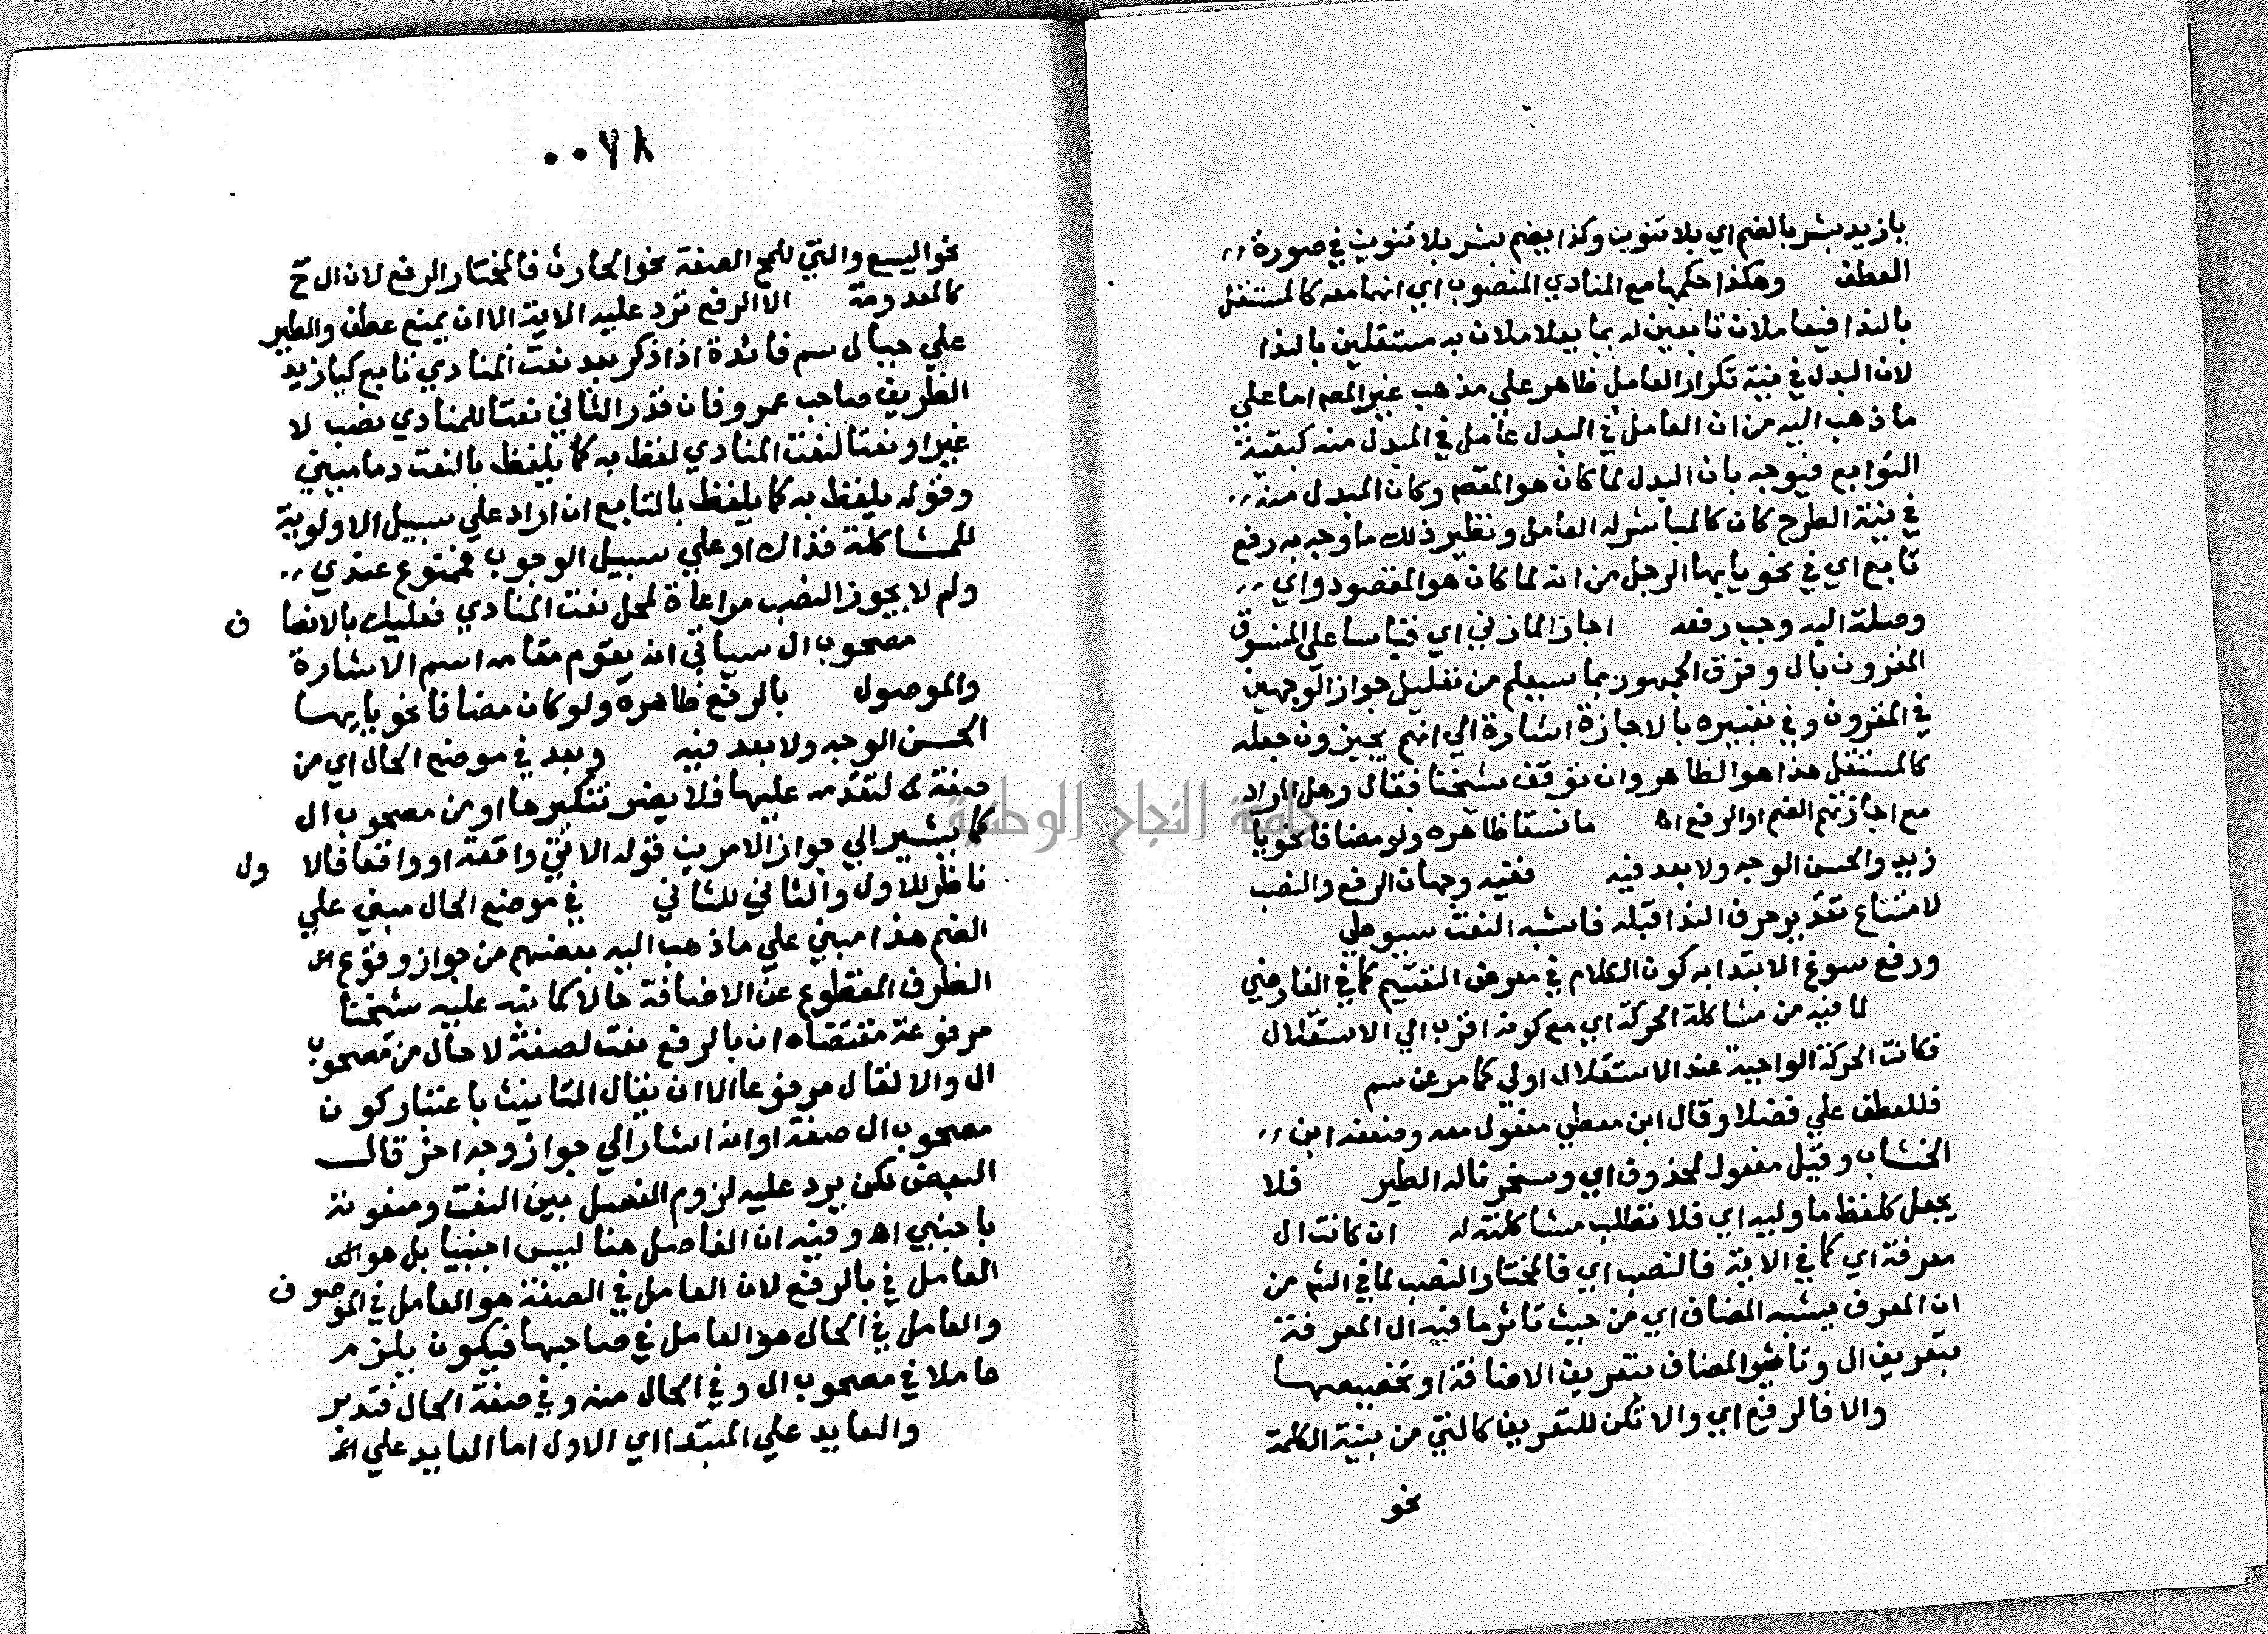 يازيد بشر بالضم اي بلا تنوين وكذا يضم بشر بلا تنوين في صورة
العطف وهكذا حكمها مع المنادي المنصوب اي انهما معه كالمستقل
بالندا فيعاملان تابعين له بما يعاملان به مستقلين بالندا
لان البدل في نية تكرار العامل ظاهر علي مذهب غير المصم اما علي
ما ذهب اليه من ان العامل في البدل عامل في المبدل منه كبقية
التوابع فيوجه بان البدل لما كان هو المقصم وكان المبدل منه
في نية الطرح كان كالمباشر له العامل ونظير ذلك ما وجه به رفع
تابع اي في نحو يايها الرجل من انه لما كان هو المقصود واي
وصلة اليه وجب رفعه اجاز المازني اي قياسا علي المنسوق
المقرون بال وفرق الجمهور بما سيعلم من تعليل جواز الوجهين
في المقرون وفي تعبيره بالاجازة اشارة الي انهم يجيزون جعله
كالمستقل هذا هو الظاهر وان توقف شيخنا فقال وهل المراد
مع اجازتهم الضم او الرفع اه ما نسقا ظاهره ولو مضافا نحو يا
زيد والحسن الوجه ولا بعد فيه ففيه وجهان الرفع والنصب
لامتناع تقدير حرف الندا قبله فاشبه النعت سيوطي
ورفع سوغ الابتدا به كون الكلام في معرض التقسيم كما في الفارضي
لما فيه من مشاكلة الحركة اي مع كونه اقرب الي الاستقلال
فكانت الحركة الواجبة عند الاستقلال اولي كما مر عن سم
فللعطف علي فضلا وقال ابن معطي مفعول معه وضعفه ابن
الخشاب وقيل مفعول لمحذوف اي وسخرنا له الطير فلا
يجعل كلفظ ما وليه اي فلا تطلب مشاكلته له ان كانت ال
معرفة اي كما في الاية فالنصب اي فالمختار النصب لما في الشم من
ان المعرف يشبه المضاف اي من حيث تاثر ما فيه ال المعرفة
بتعريف ال وتاثير المضاف بتعريف الاضافة او تخصيصها
والا فالرفع اي والا تكن للتعريف كالتي من بنية الكلمة
نحو
٠٠٧٨
نحو اليسع والتي للمح الصفة نحو الحارث فالمختار الرفع لان ال ح
كالمعدومة الا الرفع ترد عليه الاية الا ان يمنع عطف والطير
علي جبال سم فائدة اذا ذكر بعد نعت المنادي تابع كيا زيد
الظريف صاحب عمرو فان قدر الثاني نعتا للمنادي نصب لا
غير او نعتا لنعت المنادي لفظ به كما يلفظ بالنعت دماميني
وقوله يلفظ به كما يلفظ بالتابع ان اراد علي سبيل الاولوية
للمشاكلة فذاك او علي سبيل الوجوب فممنوع عندي
ولم لا يجوز النصب مراعاة لمحل نعت المنادي فعليك بالانصاف
مصحوب ال سياتي انه يقوم مقامه اسم الاشارة
والموصول بالرفع ظاهره ولو كان مضافا نحو يايها
الحسن الوجه ولا بعد فيه وبعد في موضع الحال اي من
صفة لتقدمه عليها فلا يضر تنكيرها او من مصحوب ال
كما يشير الي جواز الامرين قوله الاتي واقعة او واقعا فالاول
ناظر للاول والثاني للثاني في موضع الحال مبني علي
الضم هذا مبني علي ما ذهب اليه بعضهم من جواز وقوع
الظرف المقطوع عن الاضافة حالا كما نبه عليه شيخنا
مرفوعة مقتضاه ان بالرفع نعت لصفة لا حال من مصحوب
ال والا لقال مرفوعا الا ان يقال التانيث باعتبار كون
مصحوب ال صفة او انه اشار الي جواز وجه اخر قال
البعض لكن يرد عليه لزوم الفصل بين النعت ومنعوته
باجنبي اه وفيه ان الفاصل هنا ليس اجنبيا بل هو
العامل في بالرفع لان العامل في الصفة هو العامل في الموصوف
والعامل في الحال هو العامل في صاحبها فيكون يلزم
عاملا في مصحوب ال وفي الحال منه وفي صفة الحال فتدبر
والعايد علي المبتدا اي الاول اما العايد علي